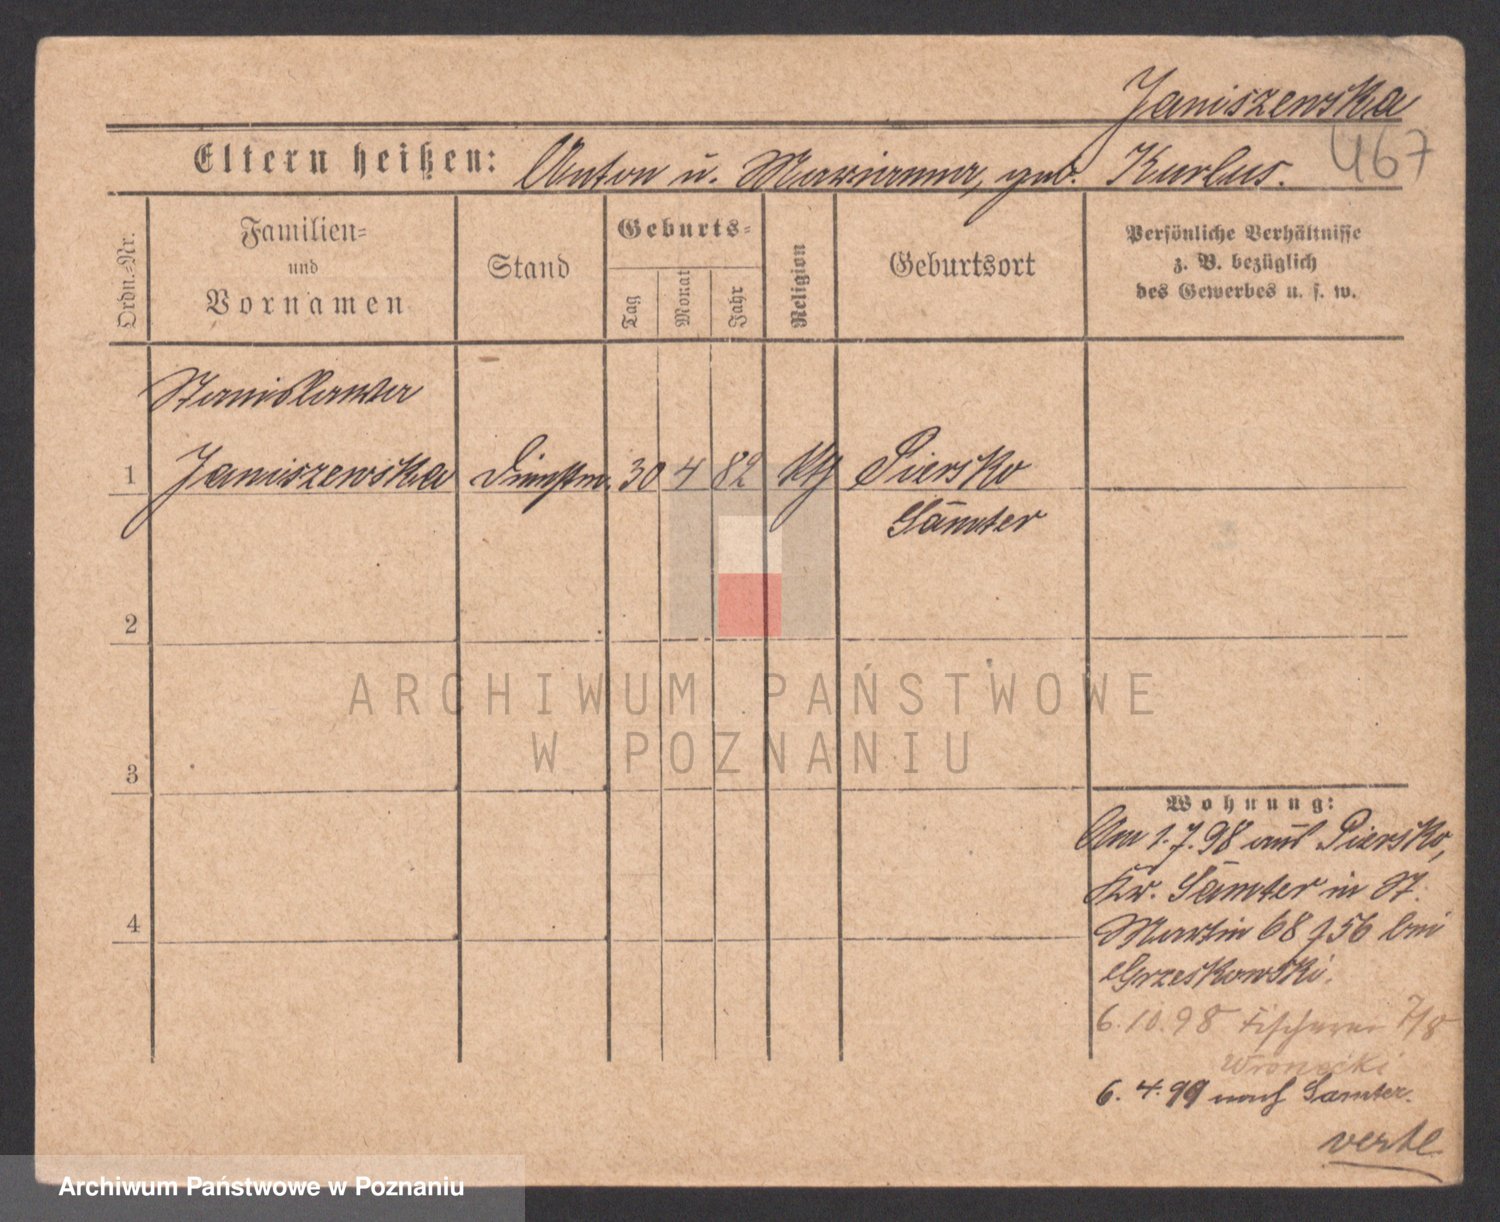 Janiszewska
467
Eltern heißen: Anton u. Marianna, geb. Kurlus.
Ordn.=Nr.
Familien=
und
Vornamen
Stand
Geburts=
Tag
Monat
Jahr
Religion
Geburtsort
Persönliche Verhältnisse
z. B. bezüglich
des Gewerbes u. s. w.
Stanislawa
1 Janiszewska Dienstm. 30 4 82 kth Piersko
Samter
2
ARCHIWUM PAŃSTWOWE
W POZNANIU
3
Wohnung:
Am 1.7.98 aus Piersko,
Kr. Samter in St.
Martin 68 56 bei
Grzeskowski.
4
6.10.98 Fischerei 7/8
Wronecki
6.4.99 nach Samter.
verte
Archiwum Państwowe w Poznaniu